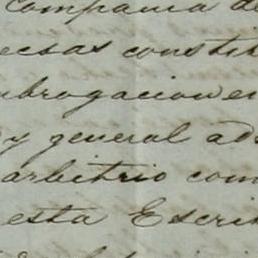 compañia de
ecsas consti
ubrogacion en
y general ad
arbitrio com
esta Escri